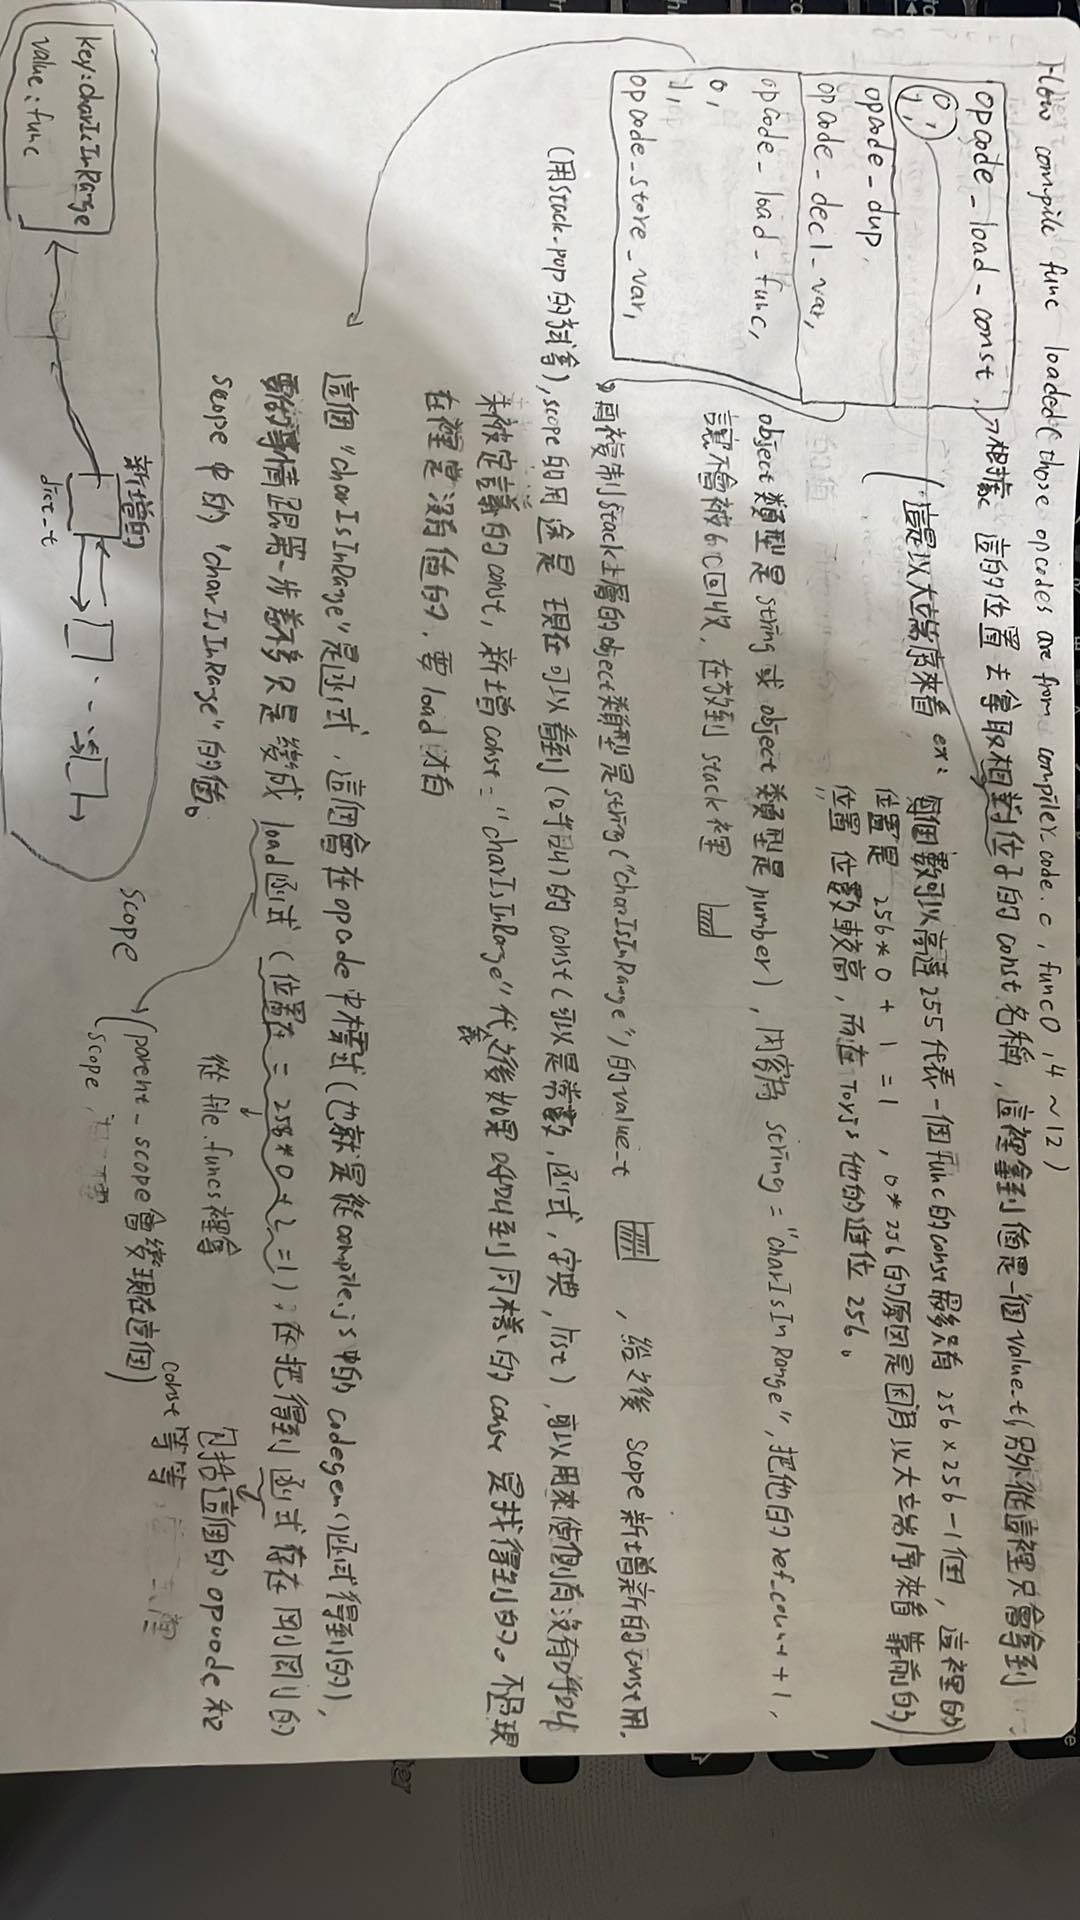 Flow compile func loaded(those opcodes are from compiler_code.c, func0, 4 ~12)
opcode_load_const,
0,
1,
opcode_dup,
opcode_decl_var,
opcode_load_func,
0,
1,
opcode_store_var,
根據 這的位置去拿取相對位子的const名稱, 這裡拿到值是一個value_t(另外從這裡只會拿到
(這是以大立端序來看 ex: 每個數可以高達255代表一個func的const最多只有 256×256-1個, 這裡的
位置是 256*0 + 1 = 1 , 0*256的原因是因為以大立端序來看 靠前的)
位置 位數較高, 而在Toyjs他的進位256。
object類型是string或object類型是number), 內容為 string = "charIsInRange", 把他的ref_count+1,
讓不會被GC回收, 在放到 stack裡
再複製stack上層的object類型是string("charIsInRange")的value_t , 給之後 scope新增新的const用。
(用stack_pop的方式拿), scope的用途是 現在可以看到(呼叫)的const(可以是常數, 函式, 字典, list), 可以用來偵側有沒有呼叫
未被定議的const, 新增const="charIsInRange"代表之後如果呼叫到同樣的const是找得到的。不過現
在裡面是沒有值的, 要load才有
這個"charIsInRange"是函式, 這個會在opcode中標式(也就是從compile.js中的codegen()函式得到的),
要做的事情跟第一步差不多只是變成 load函式 (位置在 = 256*0+1=1), 在把得到函式存在剛剛的
scope中的"charIsInRange"的值。
從file.funcs裡拿
包括這個的opcode和
const等等
(parent_scope會變現在這個)
scope
scope
新增的
key:charIsInRange
value:func
dict_t